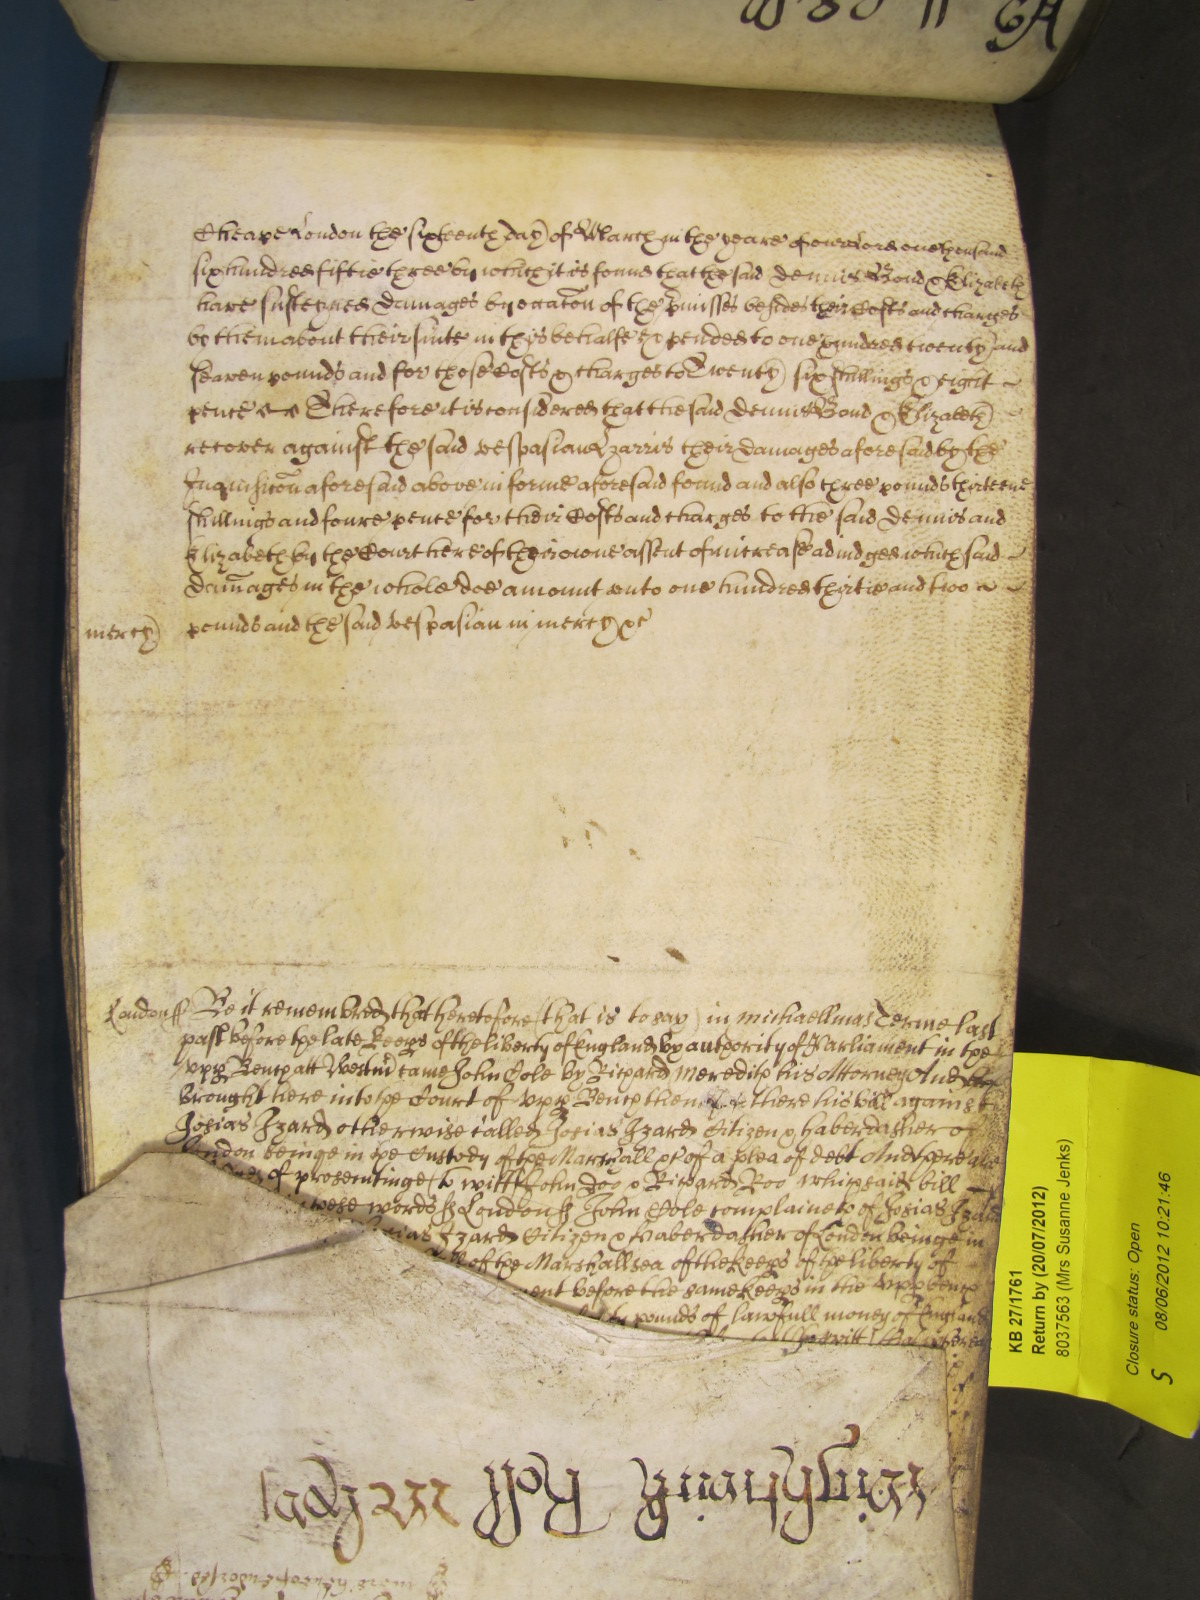 Cheape London the sixteenth day of March in the yeare of our Lord one thousand
six hundred fiftie three by which it is found that the said Dennis Bond & Elizabeth
have susteyned damages by occacōn of the p̄misses besides their Costs and charges
by them about their suite in this behalfe expended to one hundred twenty and
seaven pounds and for those Costs & charges to Twenty six shillings & eight
pence Therefore it is considered that the said Dennis Bond & Elizabeth
recover against the said Vespasian Harris their damages aforesaid by the
Inquisicōn aforesaid above in forme aforesaid found and also three pounds thirteene
shillings and foure pence for their Costs and charges to the said Dennis and
Elizabeth by the Court here of their owne assent of increase adiudged which said
damages in the whole doe amount unto one hundred thirtie and two
mercy pounds and the said Vespasian in mercy &c
London ss Be it remembred that heretofore that is to say in Michaellmas Terme last
past before the late Keeps of the liberty of England by authority of Parliament in the
upp Bench att Westm̄ came John Cole by Richard Meredith his Attorney And
brought here into the Court of upp Bench then there his bill against
Josias Izard otherwise called Josias Izard Citizen & haberdasher of
London beinge in the Custody of the Marshall &c of a plea of debt And there are
of prosecutinge to witt John Doo & Richard Roo which said bill
these words ss London ss John Cole complaineth of Josias Izard
Josias Izard Citizen & haberdasher of London beinge in
of the Marshallsea of the Keeps of the liberty of
ent before the same Keeps in the upp bench
pounds of lawfull money of England
witt
Roll
KB 27/1761
Return by (20/07/2012)
8037563 (Mrs Susanne Jenks)
Closure status: Open
S 08/06/2012 10:21:46